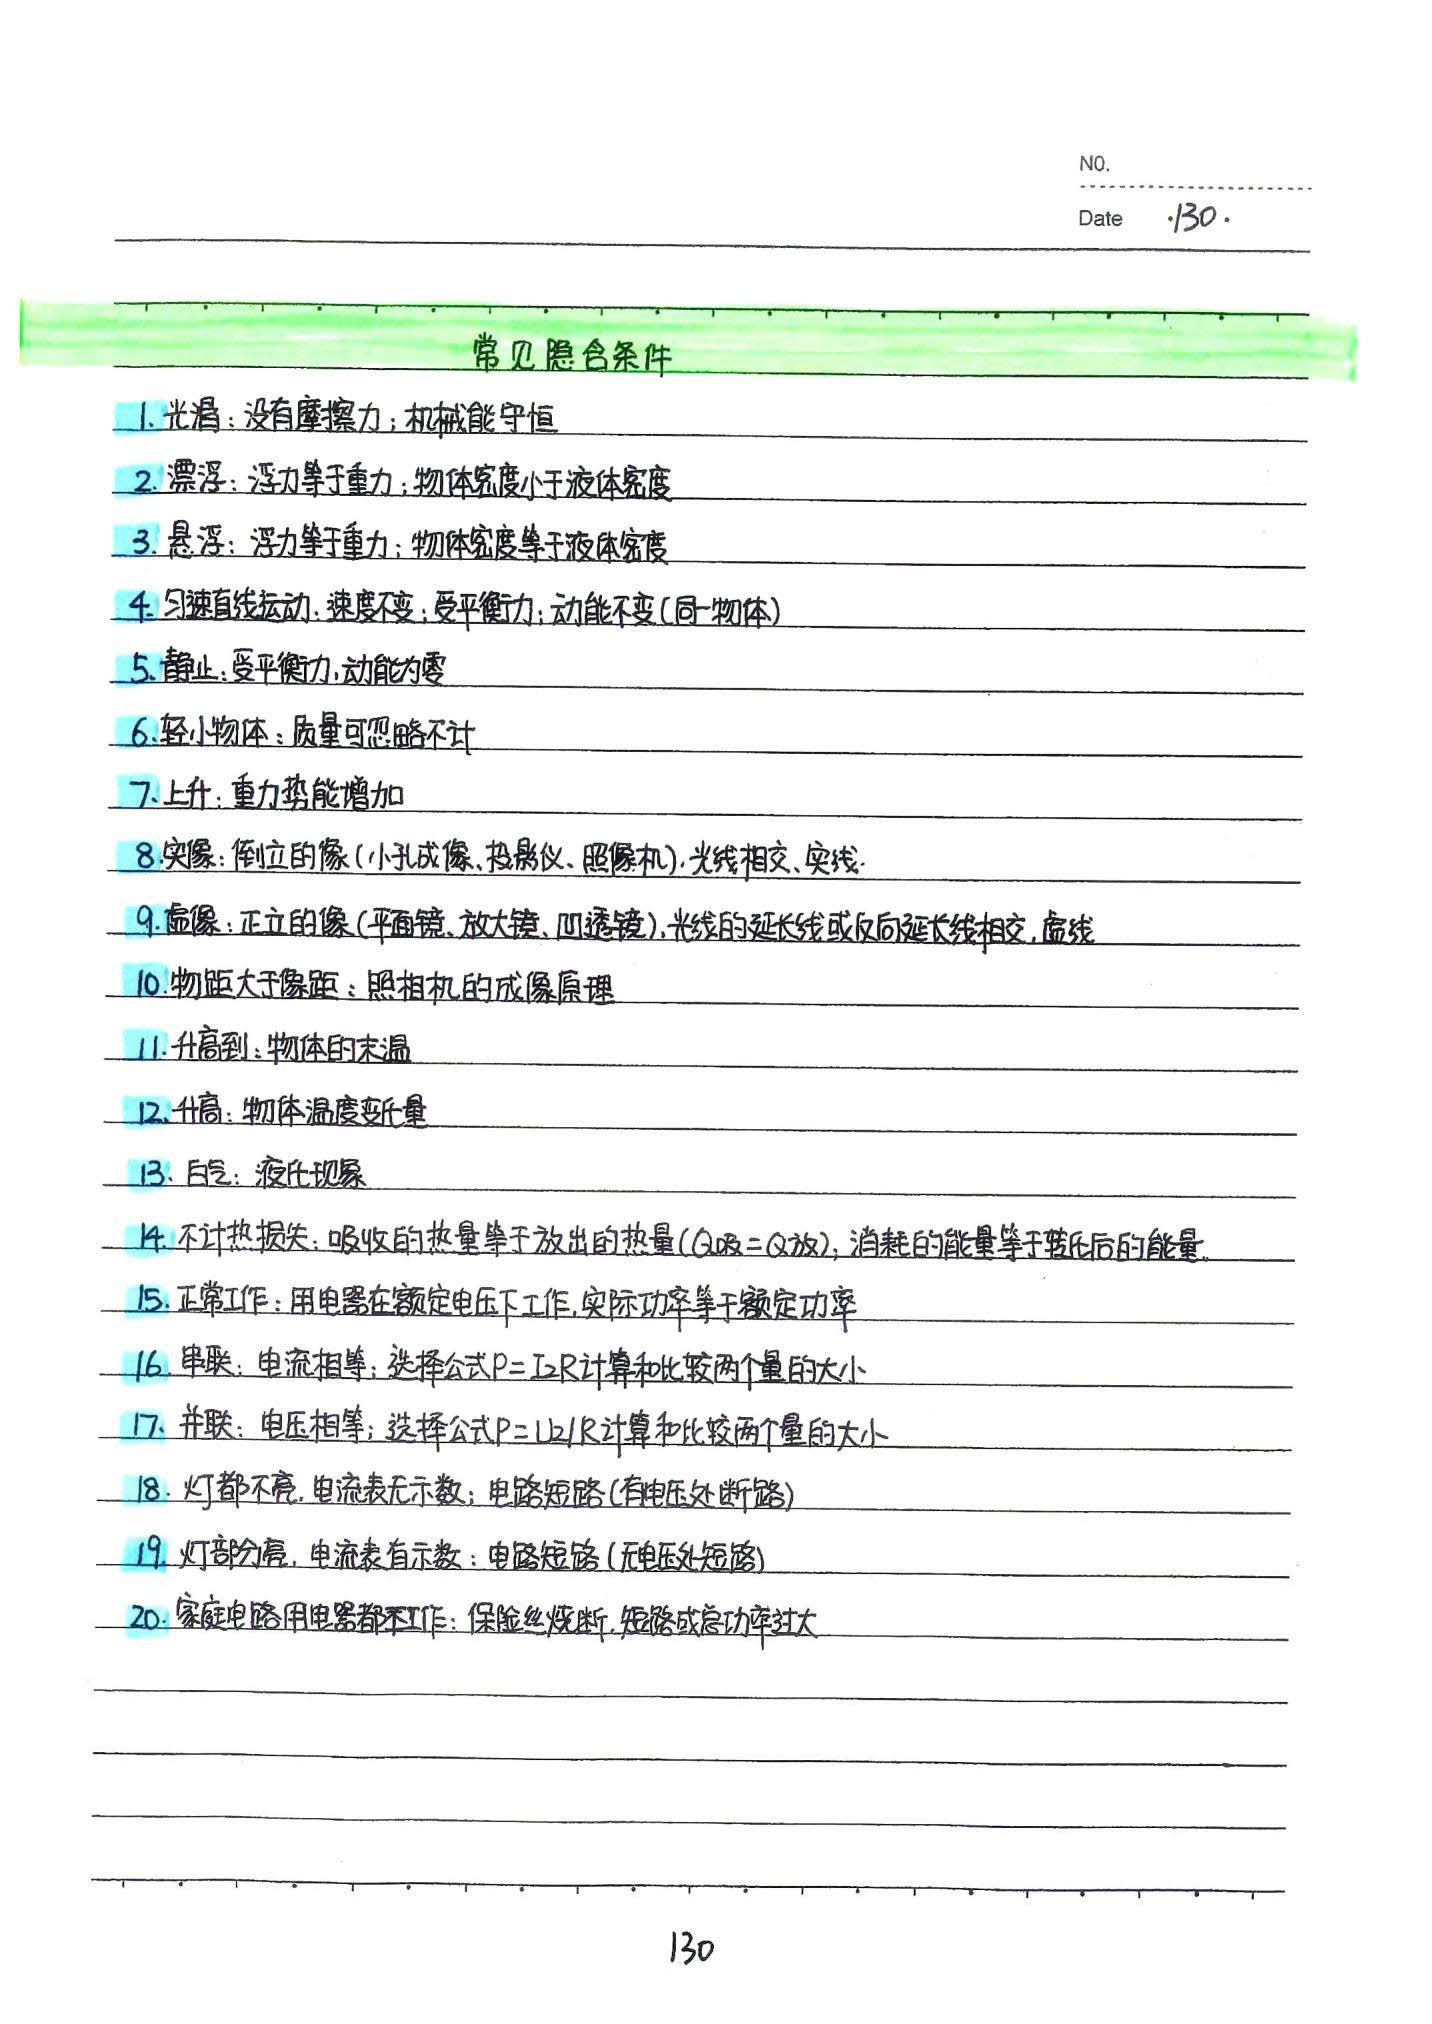 NO.
Date ·130·
常见隐含条件
1.光滑：没有摩擦力；机械能守恒
2.漂浮：浮力等于重力；物体密度小于液体密度
3.悬浮：浮力等于重力；物体密度等于液体密度
4.匀速直线运动：速度不变；受平衡力；动能不变(同一物体)
5.静止：受平衡力，动能为零
6.轻小物体：质量可忽略不计
7.上升：重力势能增加
8.实像：倒立的像(小孔成像、投影仪、照像机)，光线相交、实线.
9.虚像：正立的像(平面镜、放大镜、凹透镜)，光线的延长线或反向延长线相交，虚线
10.物距大于像距：照相机的成像原理
11.升高到：物体的末温
12.升高：物体温度变化量
13.白气：液化现象
14.不计热损失：吸收的热量等于放出的热量(Q吸=Q放)；消耗的能量等于转化后的能量.
15.正常工作：用电器在额定电压下工作，实际功率等于额定功率
16.串联：电流相等；选择公式P=I2R计算和比较两个量的大小
17.并联：电压相等；选择公式P=U2/R计算和比较两个量的大小
18.灯都不亮，电流表无示数：电路短路(有电压处断路)
19.灯部分亮，电流表有示数：电路短路(无电压处短路)
20.家庭电路用电器都不工作：保险丝烧断，短路或总功率过大
130